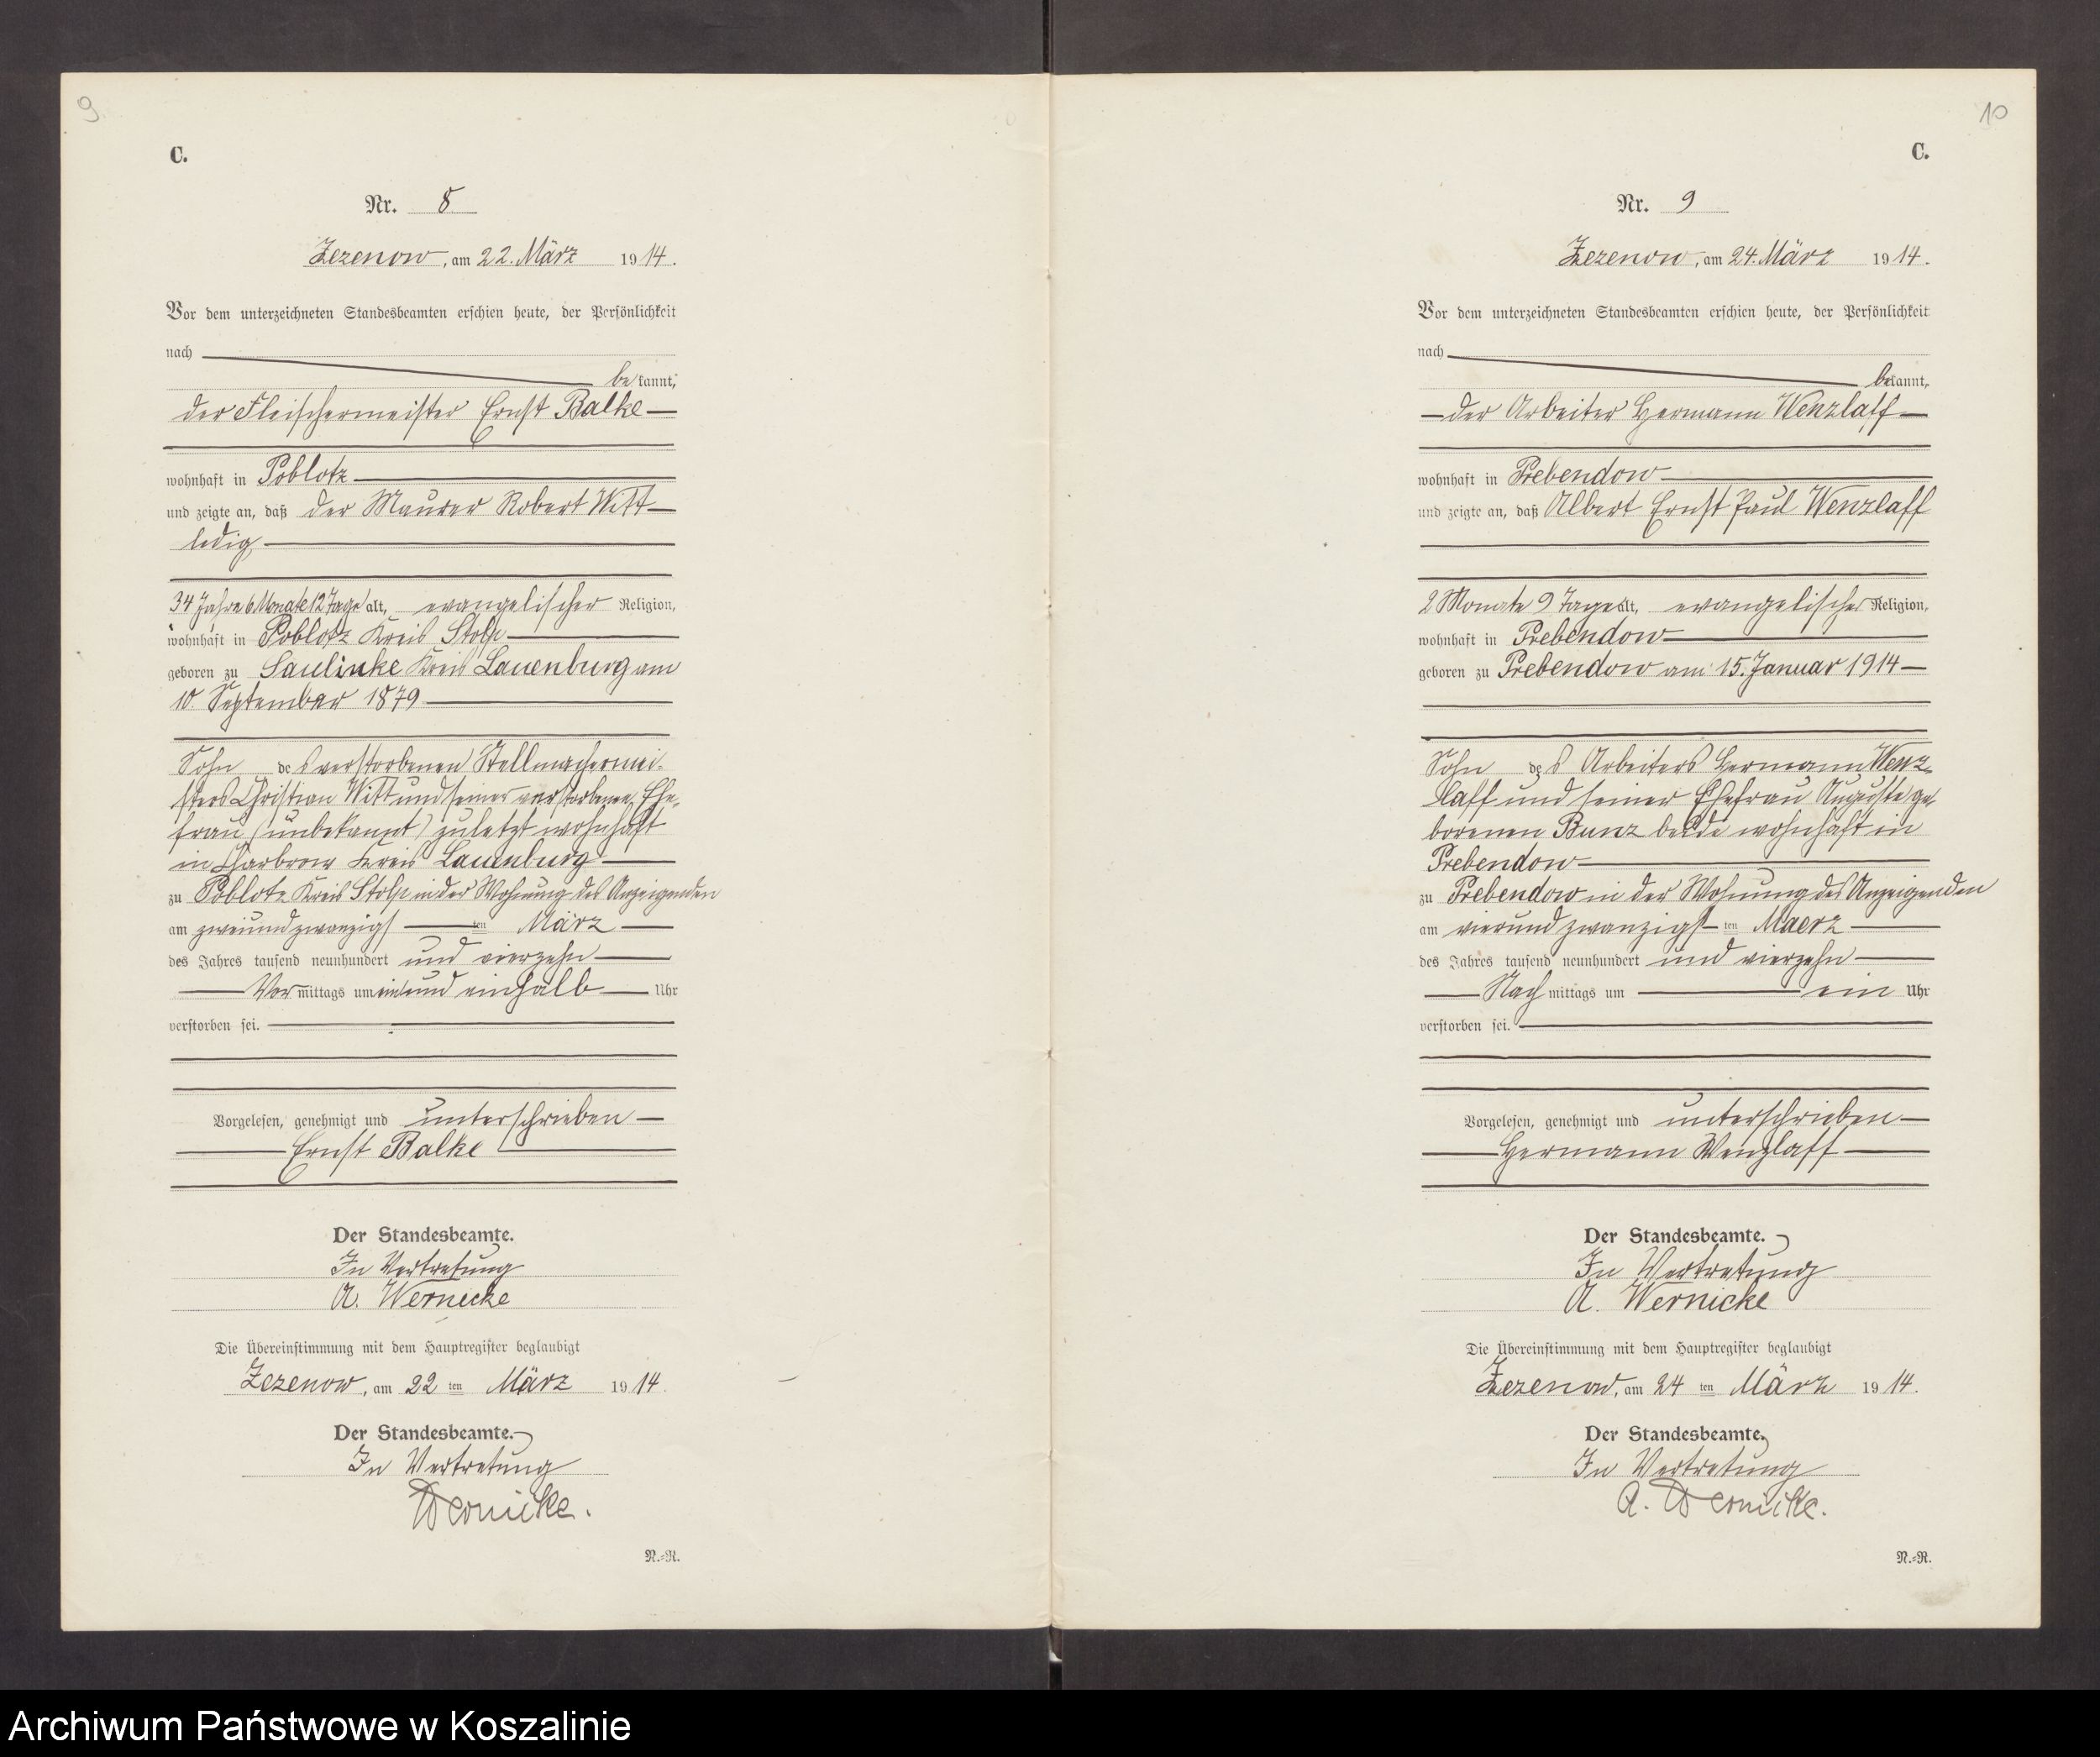 9
C.
Nr. 8
Zezenow, am 22. März 1914.
Vor dem unterzeichneten Standesbeamten erschien heute, der Persönlichkeit
nach
bekannt,
der Fleischermeister Ernst Balke
wohnhaft in Poblotz
und zeigte an, daß der Maurer Robert Witt
ledig
34 Jahre 6 Monate 12 Tage alt, evangelischer Religion,
wohnhaft in Poblotz Kreis Stolp
geboren zu Saulinke Kreis Lauenburg am
10. September 1879
Sohn des verstorbenen Stellmachermei-
sters Christian Witt und seiner verstorbenen Ehe-
frau (unbekannt) zuletzt wohnhaft
in Charbrow Kreis Lauenburg
zu Poblotz Kreis Stolp in der Wohnung des Anzeigenden
am zweiundzwanzigsten März
des Jahres tausend neunhundert und vierzehn
Vormittags um ein und einhalb Uhr
verstorben sei.
Vorgelesen, genehmigt und unterschrieben
Ernst Balke
Der Standesbeamte.
In Vertretung
A. Wernicke
Die Übereinstimmung mit dem Hauptregister beglaubigt
Zezenow, am 22 ten März 1914.
Der Standesbeamte.
In Vertretung
Wernicke.
N.-R.
10
C.
Nr. 9
Zezenow, am 24. März 1914.
Vor dem unterzeichneten Standesbeamten erschien heute, der Persönlichkeit
nach
bekannt,
der Arbeiter Hermann Wenzlaff
wohnhaft in Prebendow
und zeigte an, daß Albert Ernst Paul Wenzlaff
2 Monate 9 Tage alt, evangelischer Religion,
wohnhaft in Prebendow
geboren zu Prebendow am 15. Januar 1914
Sohn des Arbeiters Hermann Wenz-
laff und seiner Ehefrau Auguste ge-
borenen Bunz beide wohnhaft in
Prebendow
zu Prebendow in der Wohnung des Anzeigenden
am vierundzwanzigsten Maerz
des Jahres tausend neunhundert und vierzehn
Nachmittags um ein Uhr
verstorben sei.
Vorgelesen, genehmigt und unterschrieben
Hermann Wenzlaff
Der Standesbeamte.
In Vertretung
A. Wernicke
Die Übereinstimmung mit dem Hauptregister beglaubigt
Zezenow, am 24 ten März 1914.
Der Standesbeamte.
In Vertretung
A. Wernicke.
N.-R.
Archiwum Państwowe w Koszalinie